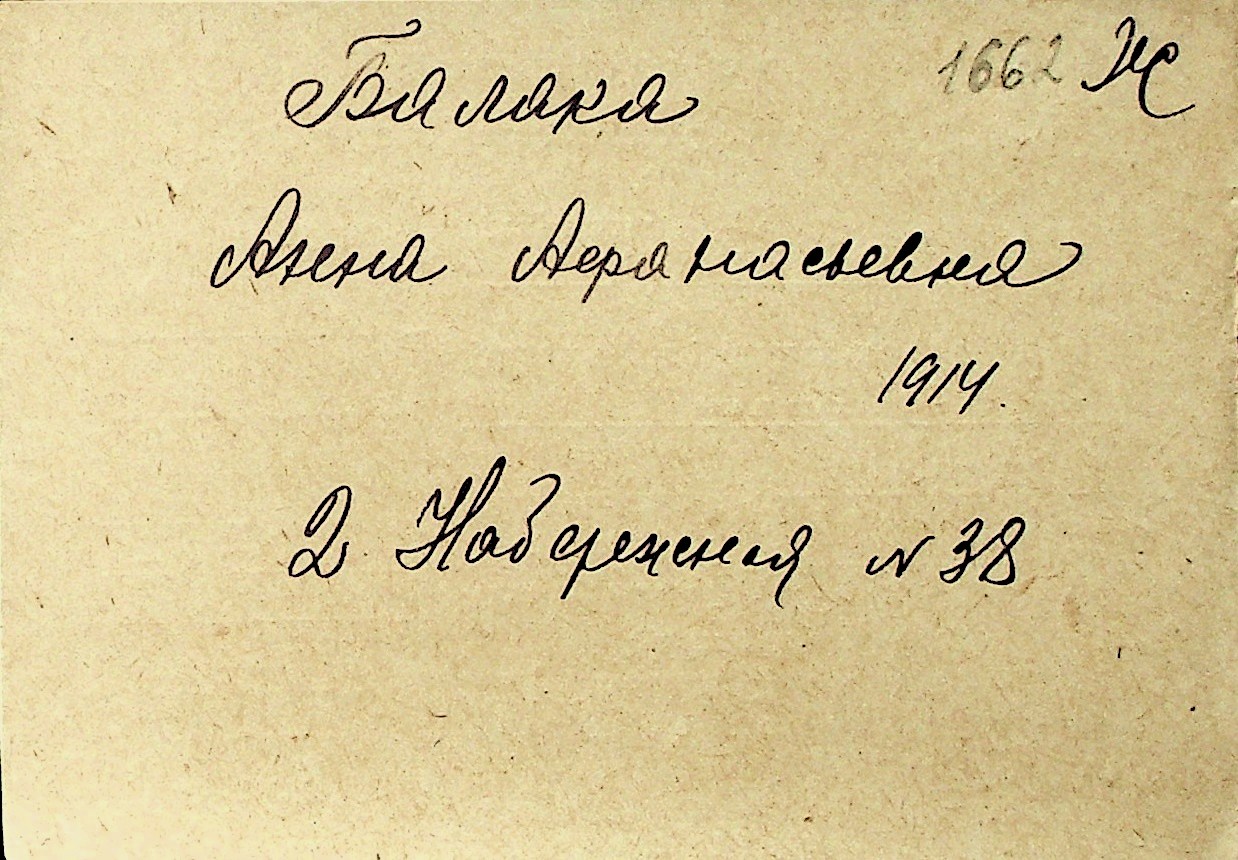 1662 Ж
Балака
Анна Афанасьевна
1914.
2 Набережная N 38